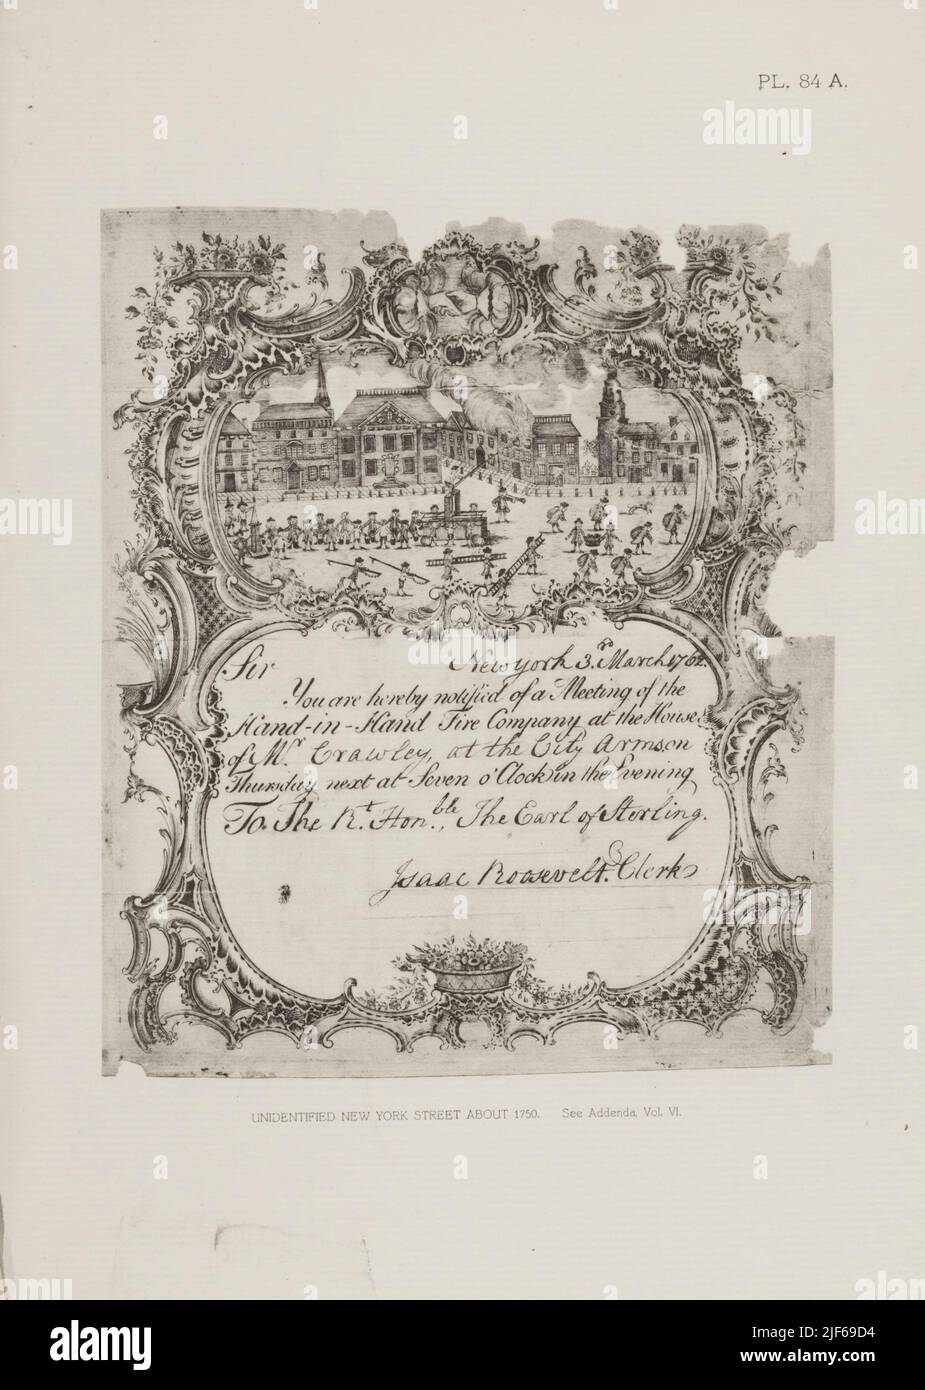 PL. 84 A.
Sir New york 3.d March 1762.
You are hereby notified of a Meeting of the
Hand-in-Hand Fire Company at the House
of Mr Crawley, at the City Arms on
Thursday next at Seven o'Clock in the Evening
To The Rt. Honble., The Earl of Sterling.
Isaac Roosevelt. Clerk
UNIDENTIFIED NEW YORK STREET ABOUT 1750. See Addenda, Vol. VI.
alamy
alamy
Image ID: 2JF69D4
www.alamy.com